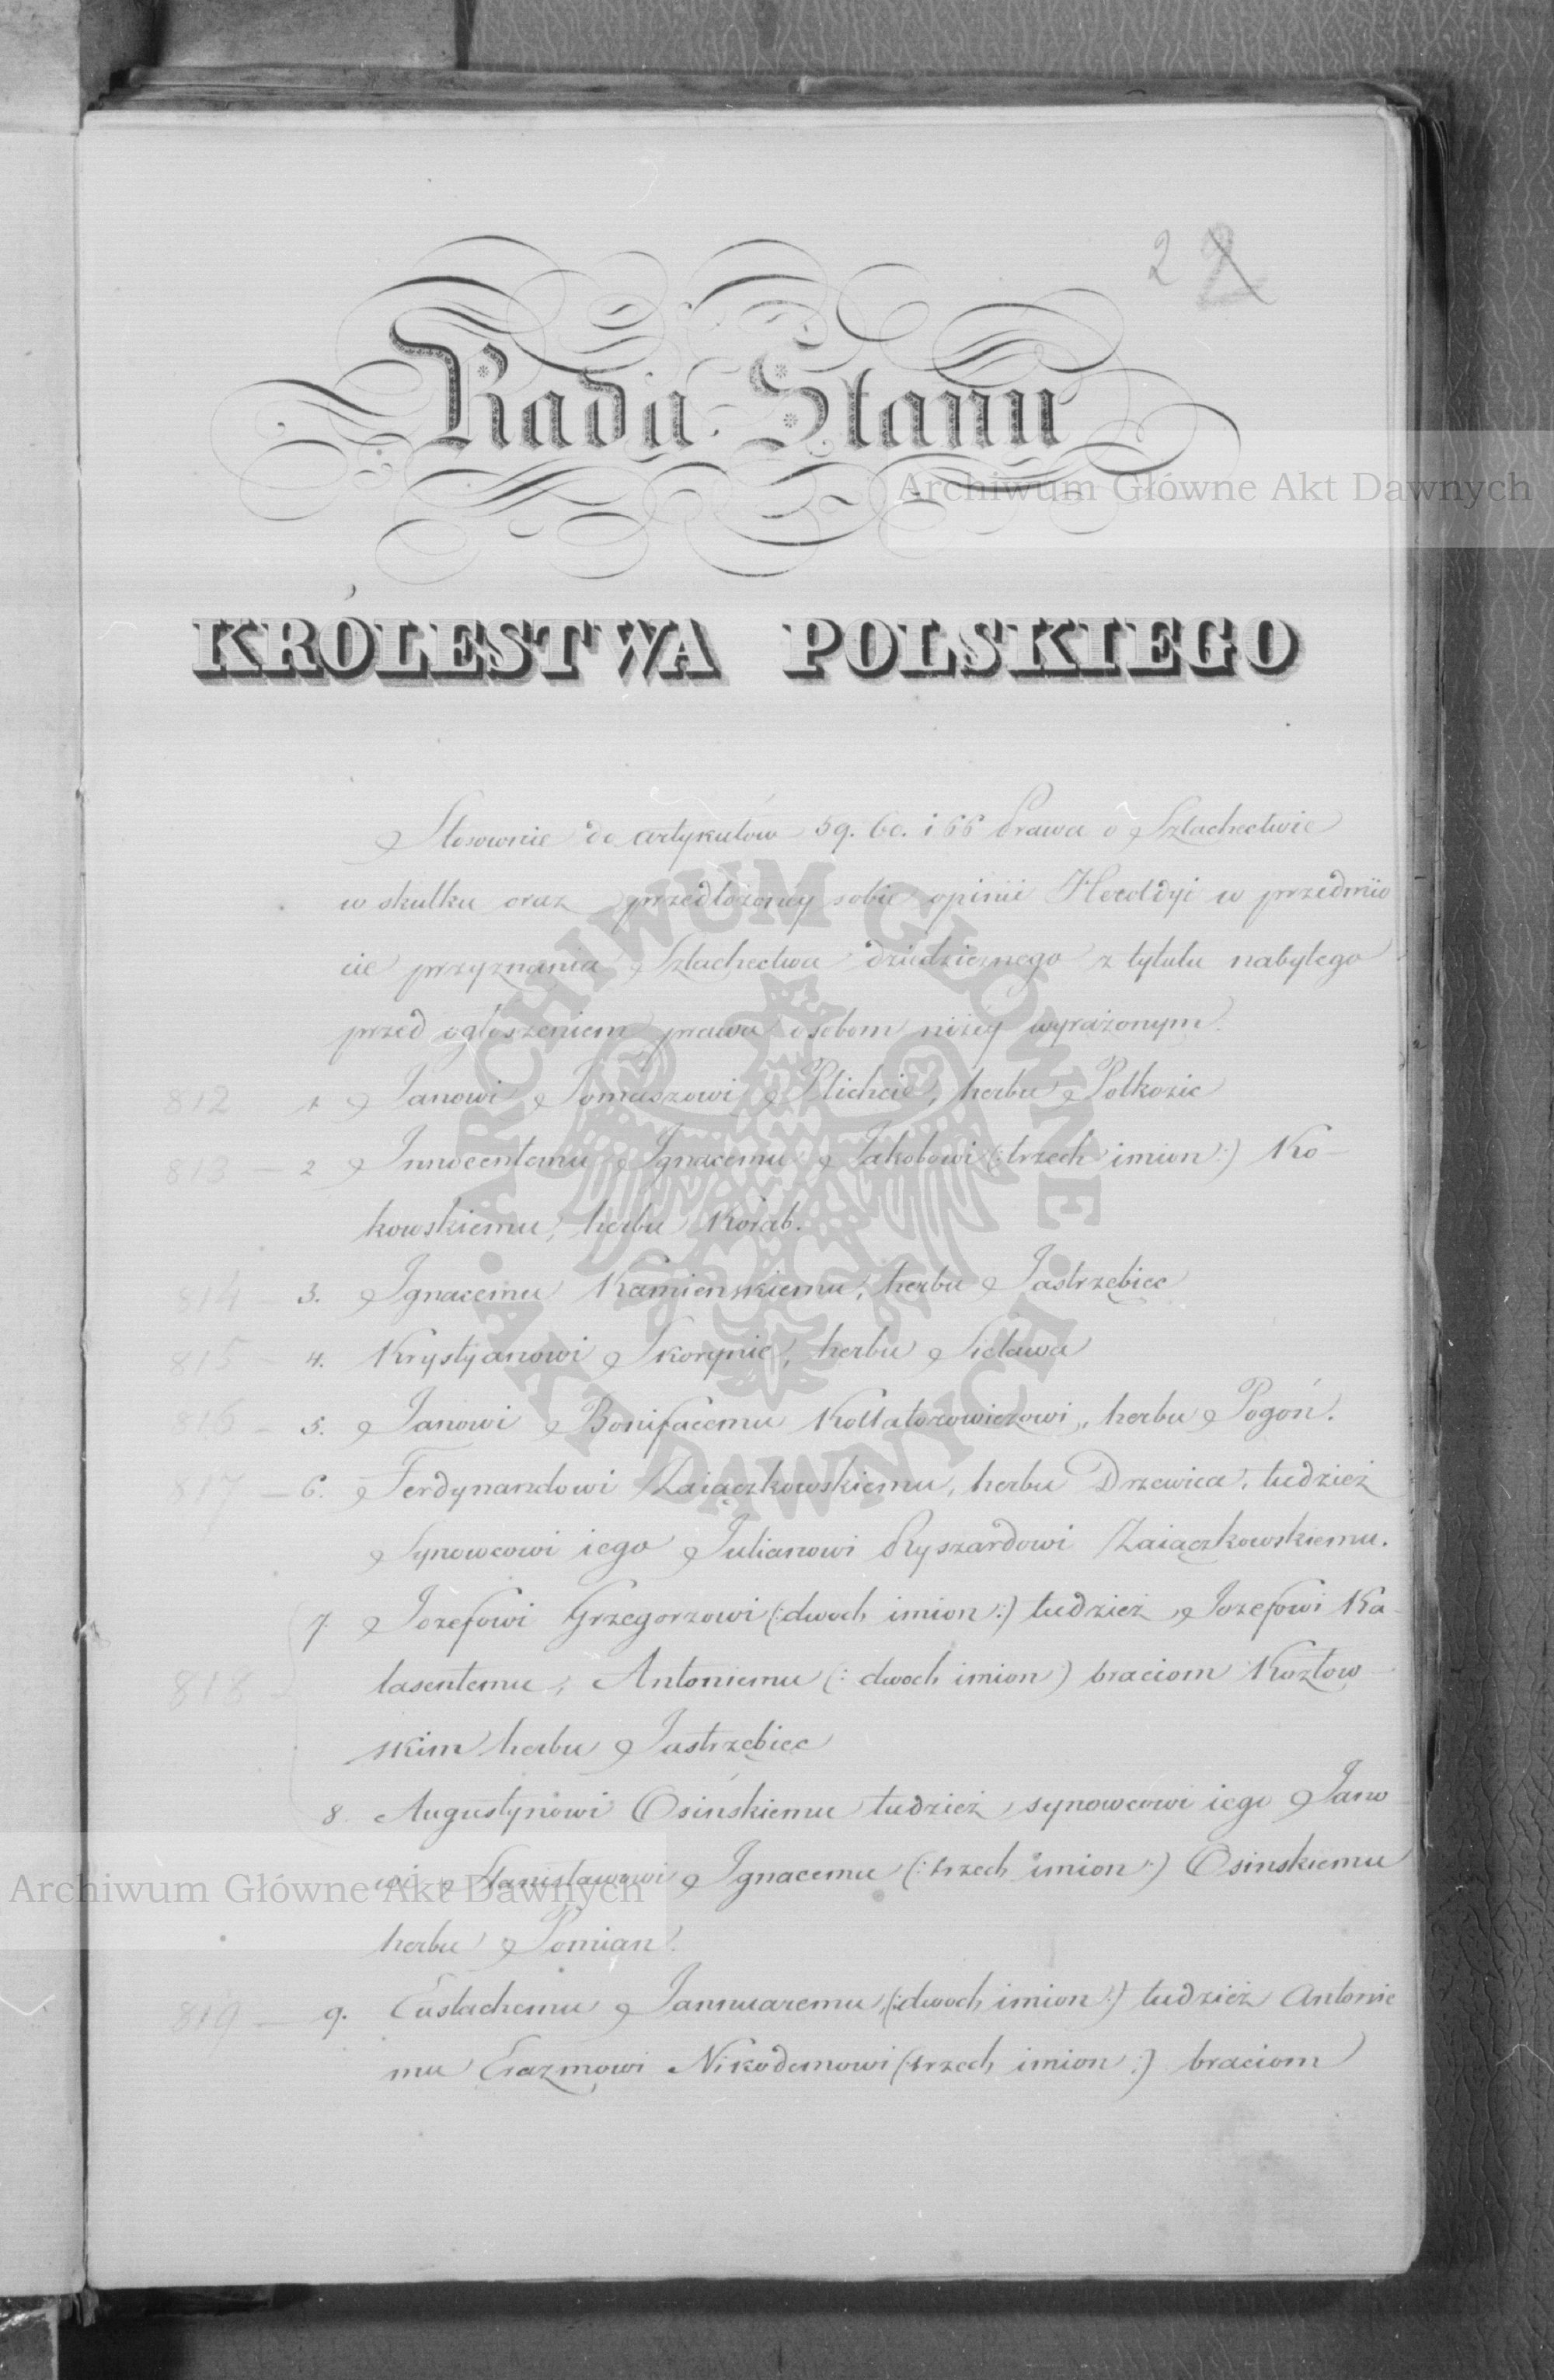 2 2
Rada Stanu
Archiwum Główne Akt Dawnych
KRÓLESTWA POLSKIEGO
Stosownie do artykułów 59. 60. i 66 Prawa o Szlachectwie
w skutku oraz przedłożoney sobie opinii Heroldyi w przedmio
cie przyznania Szlachectwa dziedzicznego z tytułu nabytego
przed ogłoszeniem prawa osobom niżey wyrażonym.
812 1 Janowi Tomaszowi Plichcie, herbu Półkozic
813 — 2 Innocentemu Ignacemu Jakobowi (: trzech imion :) Ko-
kowskiemu, herbu Korab.
814 — 3. Ignacemu Kamienskiemu, herbu Jastrzębiec
815 — 4. Krystyanowi Skorynie, herbu Sielawa
816 — 5. Janowi Bonifacemu Kollatorowiczowi, herbu Pogoń.
817 — 6. Ferdynandowi Zaiączkowskiemu, herbu Drzewica, tudzież
Synowcowi iego Julianowi Ryszardowi Zaiączkowskiemu.
7. Jozefowi Grzegorzowi (: dwoch imion :) tudzież Jozefowi Ka-
818 — lasentemu, Antoniemu (: dwoch imion :) braciom Kozłow-
skim herbu Jastrzębiec
8. Augustynowi Osińskiemu tudzież synowcowi iego Jano
wi Stanisławowi Ignacemu (: trzech imion :) Osinskiemu
Archiwum Główne Akt Dawnych
herbu Pomian.
819 — 9. Eustachemu Jannuaremu (: dwoch imion :) tudzież Antonie
mu Erazmowi Nikodemowi (: trzech imion :) braciom
ARCHIWUM GŁÓWNE • AKT DAWNYCH •